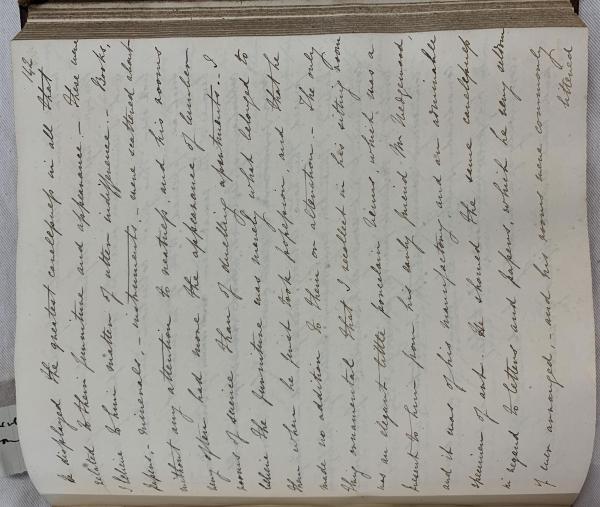 142
he displayed the greatest carelessness in all that
related to them furniture and appearance — these were
I believe to him matters of utter indifference. — Books,
papers, — minerals, — instruments, — were scattered about
without any attention to neatness, and his rooms
very often had more the appearance of lumber
rooms of science than of dwelling apartments. — I
believe the furniture was merely what belonged to
them when he first took possession, and that he
made no addition to them or alteration. — The only
thing ornamental that I recollect in his sitting room
was an elegant little porcelain Venus, which was a
present to him from his early friend Mr. Wedgewood,
and it was of his manufactory and an admirable
specimen of art. He showed the same carelessness
in regard to letters and papers, which he very seldom
if ever arranged, — and his rooms were commonly
littered